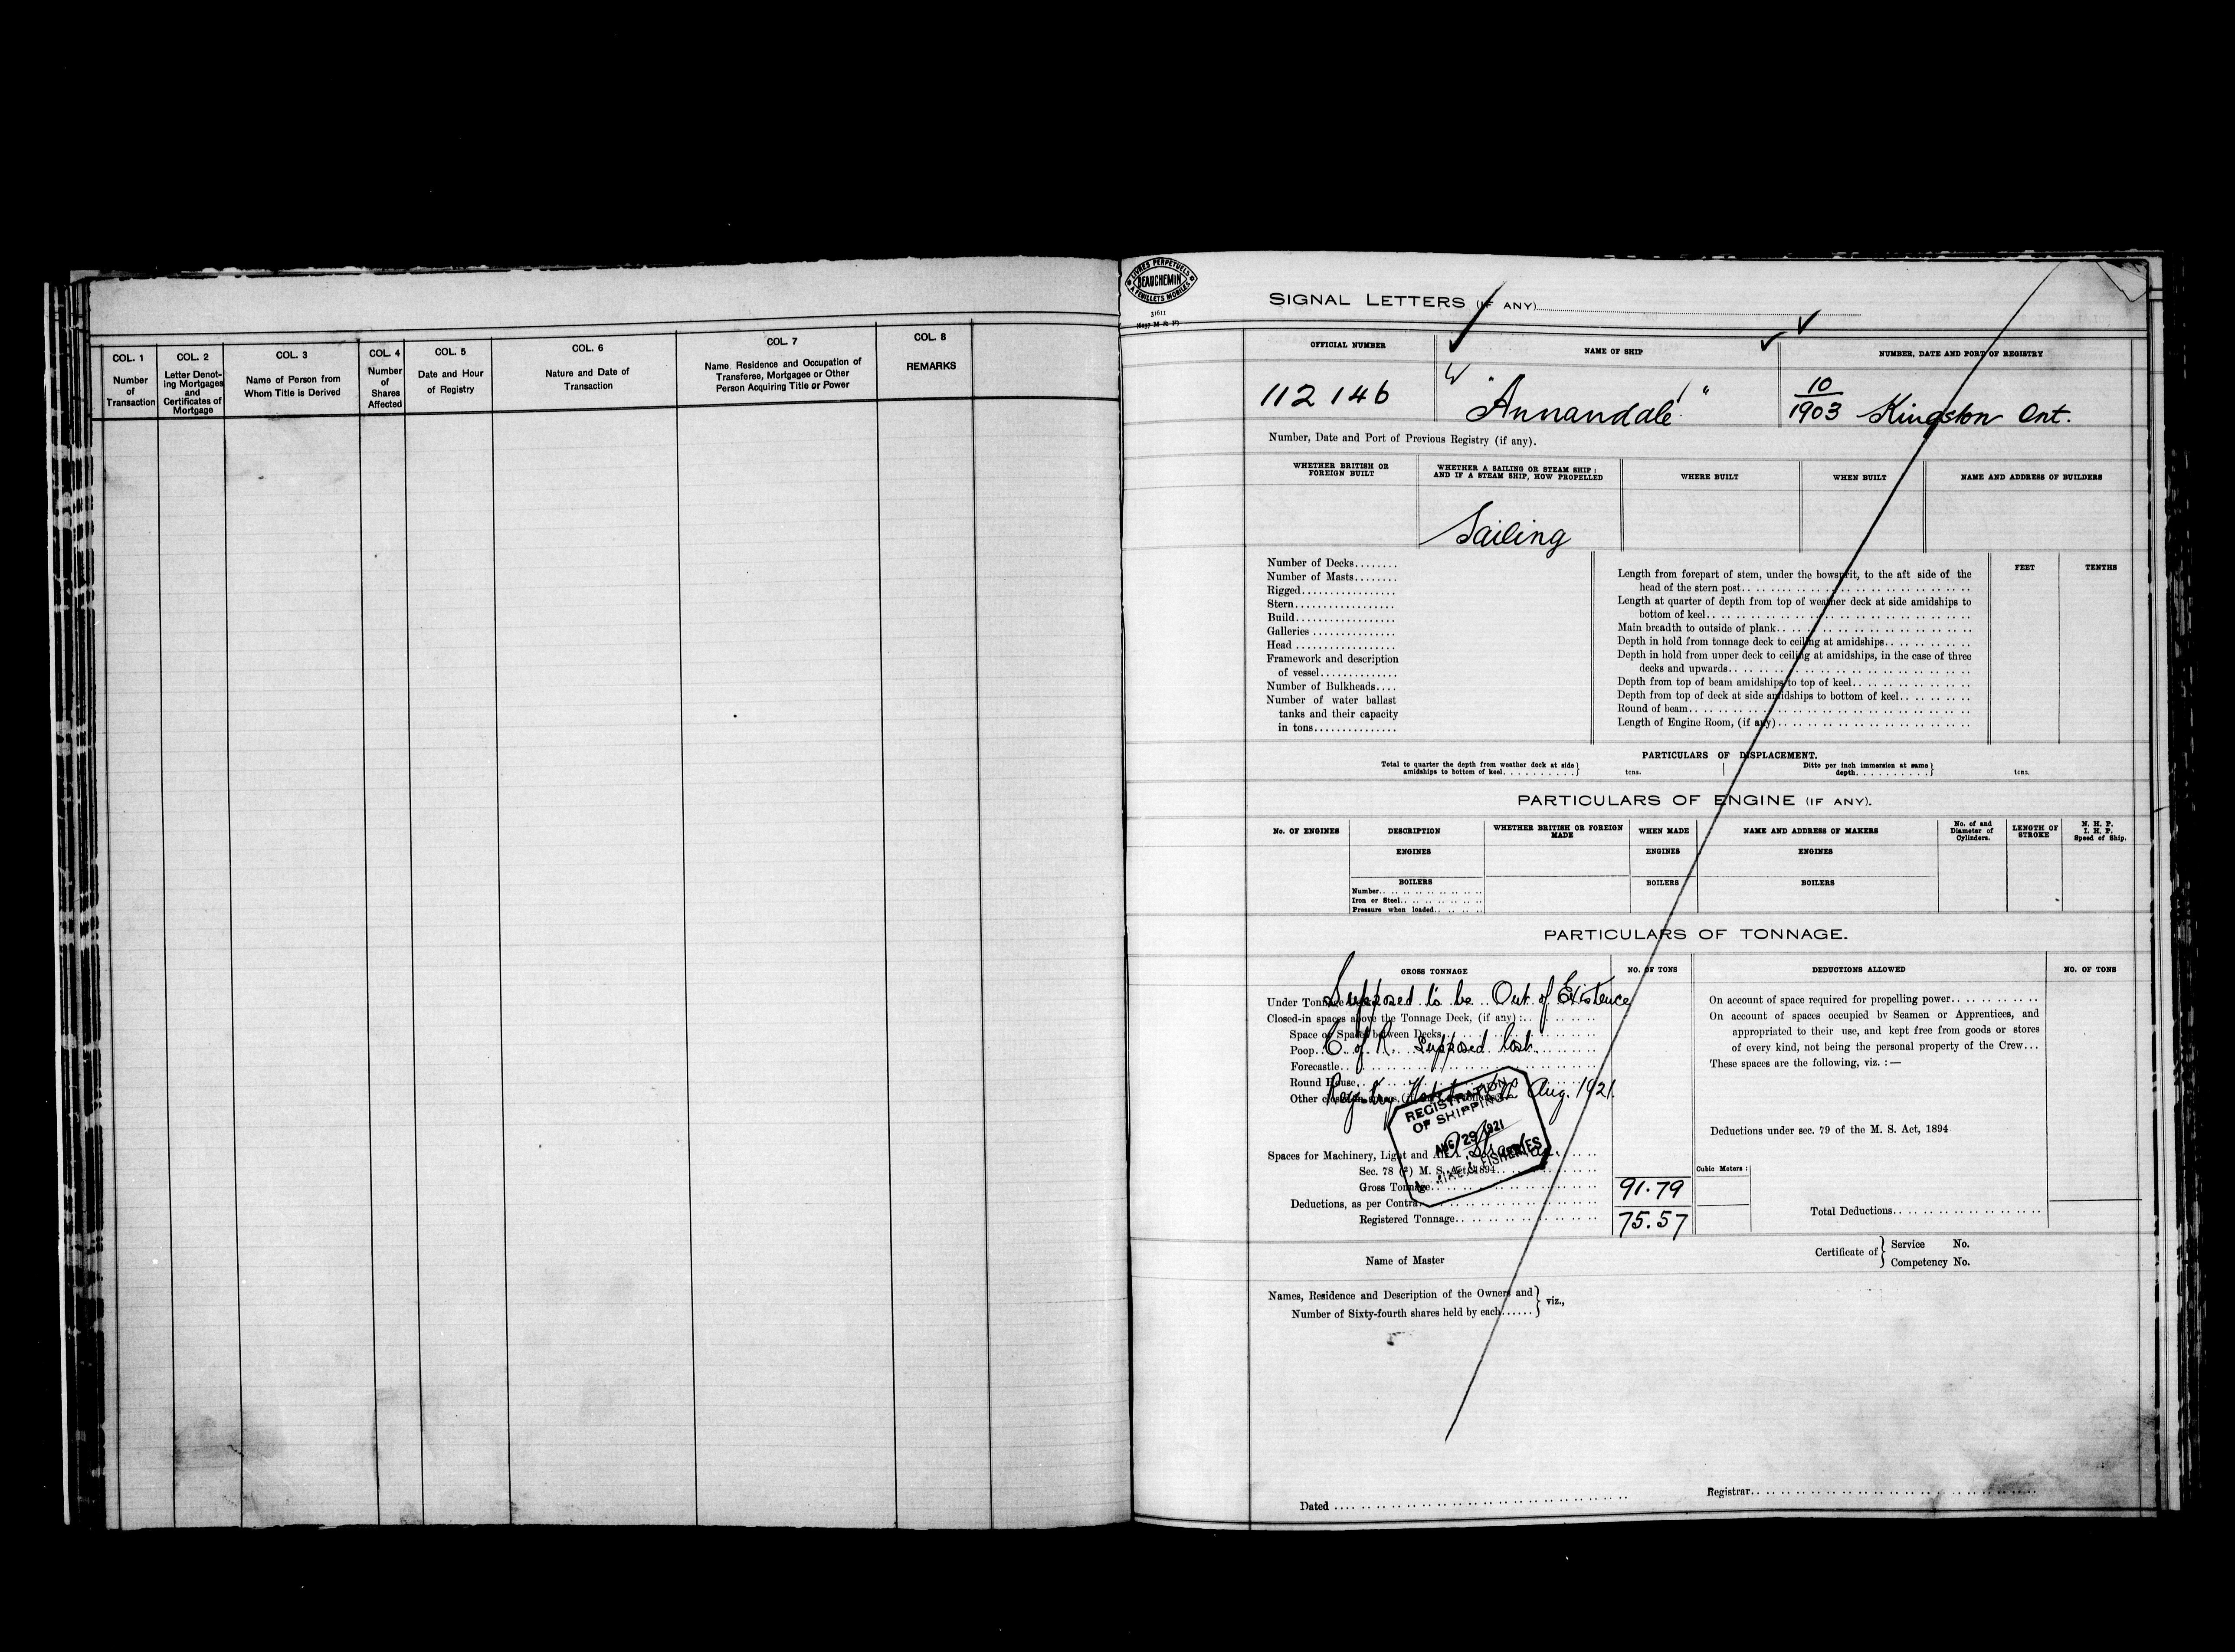 COL. 1
Number
of
Transaction
COL. 2
Letter Denot-
ing Mortgages
and
Certificates of
Mortgage
COL. 3
Name of Person from
Whom Title is Derived
COL. 4
Number
of
Shares
Affected
COL. 5
Date and Hour
of Registry
COL. 6
Nature and Date of
Transaction
COL. 7
Name, Residence and Occupation of
Transferee, Mortgagee or Other
Person Acquiring Title or Power
COL. 8
REMARKS
LIVRES PERPETUELS
BEAUCHEMIN
A FEUILLETS MOBILES
31611
SIGNAL LETTERS (IF ANY)
OFFICIAL NUMBER
NAME OF SHIP
NUMBER, DATE AND PORT OF REGISTRY
112146
"Annandale"
10/1903 Kingston Ont.
Number, Date and Port of Previous Registry (if any).
WHETHER BRITISH OR
FOREIGN BUILT
WHETHER A SAILING OR STEAM SHIP:
AND IF A STEAM SHIP, HOW PROPELLED
WHERE BUILT
WHEN BUILT
NAME AND ADDRESS OF BUILDERS
Sailing
Number of Decks........
Number of Masts........
Rigged.................
Stern..................
Build..................
Galleries ...............
Head ..................
Framework and description
of vessel..............
Number of Bulkheads....
Number of water ballast
tanks and their capacity
in tons...............
FEET
TENTHS
Length from forepart of stem, under the bowsprit, to the aft side of the
head of the stern post..
Length at quarter of depth from top of weather deck at side amidships to
bottom of keel..
Main breadth to outside of plank..
Depth in hold from tonnage deck to ceiling at amidships..
Depth in hold from upper deck to ceiling at amidships, in the case of three
decks and upwards..
Depth from top of beam amidships to top of keel..
Depth from top of deck at side amidships to bottom of keel..
Round of beam..
Length of Engine Room, (if any)..
PARTICULARS OF DISPLACEMENT.
Total to quarter the depth from weather deck at side
amidships to bottom of keel..........} tons.
Ditto per inch immersion at same
depth..........} tons.
PARTICULARS OF ENGINE (IF ANY).
No. OF ENGINES
DESCRIPTION
WHETHER BRITISH OR FOREIGN
MADE
WHEN MADE
NAME AND ADDRESS OF MAKERS
No. of and
Diameter of
Cylinders.
LENGTH OF
STROKE
N. H. P.
I. H. P.
Speed of Ship.
ENGINES
ENGINES
ENGINES
BOILERS
BOILERS
BOILERS
Number..
Iron or Steel..
Pressure when loaded..
PARTICULARS OF TONNAGE.
GROSS TONNAGE
NO. OF TONS
DEDUCTIONS ALLOWED
NO. OF TONS
Under Tonnage
Supposed to be Out of Existence
Closed-in spaces above the Tonnage Deck, (if any):..
Space or Spaces between Decks
Poop..
C of R. Supposed lost.
Forecastle..
Round House
Other
Registry Aug. 1921.
REGISTRATION
OF SHIPPING
AUG 29 1921
& FISHERIES
Spaces for Machinery, Light and
Sec. 78 (2) M. S. Act, 1894..
Gross Tonnage.. 91.79
Deductions, as per Contra
Registered Tonnage.. 75.57
On account of space required for propelling power..
On account of spaces occupied by Seamen or Apprentices, and
appropriated to their use, and kept free from goods or stores
of every kind, not being the personal property of the Crew...
These spaces are the following, viz. :—
Deductions under sec. 79 of the M. S. Act, 1894
Cubic Meters :
Total Deductions..
Name of Master
Certificate of { Service No.
Competency No.
Names, Residence and Description of the Owners and
Number of Sixty-fourth shares held by each......} viz.,
Dated ....
Registrar..